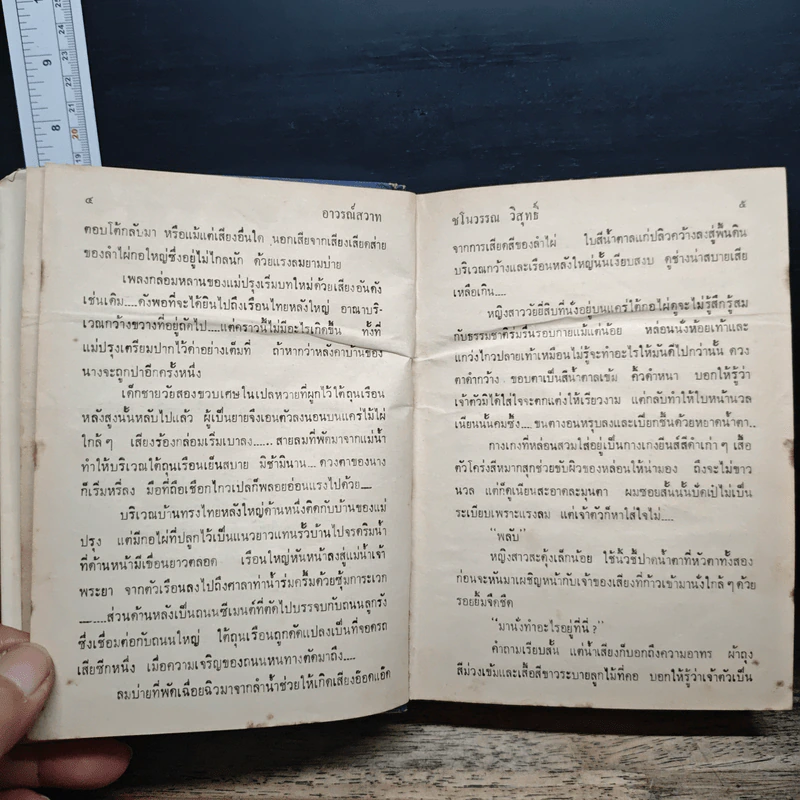 9
8
25
24
23
22
21
20
19
๔
อาวรณ์สวาท
ตอบโต้กลับมา หรือแม้แต่เสียงอื่นใด นอกเสียจากเสียงเสียดส่าย
ของลำไผ่กอใหญ่ซึ่งอยู่ไม่ไกลนัก ด้วยแรงลมยามบ่าย
เพลงกล่อมหลานของแม่ปรุงเริ่มบทใหม่ด้วยเสียงอันดัง
เช่นเดิม....ดังพอที่จะได้ยินไปถึงเรือนไทยหลังใหญ่ อาณาบริ-
เวณกว้างขวางที่อยู่ถัดไป....แต่คราวนี้ไม่มีอะไรเกิดขึ้น ทั้งที่
แม่ปรุงเตรียมปากไว้ค่าอย่างเต็มที่ ถ้าหากว่าหลังคาบ้านของ
นางจะถูกปาอีกครั้งหนึ่ง
เด็กชายวัยสองขวบเศษในเปลหวายที่ผูกไว้ใต้ถุนเรือน
หลังสูงนั้นหลับไปแล้ว ผู้เป็นยายจึงเอนตัวลงนอนบนแคร่ไม้ไผ่
ใกล้ๆ เสียงร้องกล่อมเริ่มเบาลง...... สายลมที่พัดมาจากแม่น้ำ
ทำให้บริเวณใต้ถุนเรือนเย็นสบาย มิช้ามินาน.... ดวงตาของนาง
ก็เริ่มหรี่ลง มือที่ถือเชือกไกวเปลก็พลอยอ่อนแรงไปด้วย....
บริเวณบ้านทรงไทยหลังใหญ่ด้านหนึ่งติดกับบ้านของแม่
ปรุง แต่มีกอไผ่ที่ปลูกไว้เป็นแนวยาวแทนรั้วบ้านไปจรดริมน้ำ
ที่ด้านหน้ามีเขื่อนยาวตลอด เรือนใหญ่หันหน้าลงสู่แม่น้ำเจ้า
พระยา จากตัวเรือนลงไปถึงศาลาท่าน้ำร่มครึ้มด้วยซุ้มการะเวก
......ส่วนด้านหลังเป็นถนนซีเมนต์ที่ตัดไปบรรจบกับถนนลูกรัง
ซึ่งเชื่อมต่อกับถนนใหญ่ ใต้ถุนเรือนถูกดัดแปลงเป็นที่จอดรถ
เสียซีกหนึ่ง เมื่อความเจริญของถนนหนทางตัดมาถึง....
ลมบ่ายที่พัดเฉื่อยฉิวมาจากลำน้ำช่วยให้เกิดเสียงอ๊อดแอ๊ด
ชโนวรรณ วิสุทธิ์
๕
จากการเสียดสีของลำไผ่ ใบสีน้ำตาลแก่ปลิวคว้างลงสู่พื้นดิน
บริเวณกว้างและเรือนหลังใหญ่นั้นเงียบสงบ ดูช่างน่าสบายเสีย
เหลือเกิน....
หญิงสาววัยยี่สิบที่นั่งอยู่บนแคร่ใต้กอไผ่ดูจะไม่รู้สึกรู้สม
กับธรรมชาติร่มรื่นรอบกายแม้แต่น้อย หล่อนนั่งห้อยเท้าและ
แกว่งไกวปลายเท้าเหมือนไม่รู้จะทำอะไรให้มันดีไปกว่านั้น ดวง
ตาดำกว้าง ขอบตาเป็นสีน้ำตาลเข้ม คิ้วดำหนา บอกให้รู้ว่า
เจ้าตัวมิได้ใส่ใจจะตกแต่งให้เรียวงาม แต่กลับทำให้ใบหน้านวล
เนียนนั้นคมซึ้ง.... ขนตางอนหรุบลงและเปียกชื้นด้วยหยาดน้ำตา
กางเกงที่หล่อนสวมใส่อยู่เป็นกางเกงยีนส์สีดำเก่าๆ เสื้อ
ตัวโคร่งสีหมากสุกช่วยขับผิวของหล่อนให้น่ามอง ถึงจะไม่ขาว
นวล แต่ก็ดูเนียนสะอาดละมุนตา ผมซอยสั้นนั้นปัดเป๋ไม่เป็น
ระเบียบเพราะแรงลม แต่เจ้าตัวก็หาใส่ใจไม่....
"พลับ"
หญิงสาวสะดุ้งเล็กน้อย ใช้นิ้วชี้ปาดน้ำตาที่หัวตาทั้งสอง
ก่อนจะหันมาเผชิญหน้ากับเจ้าของเสียงที่ก้าวเข้ามานั่งใกล้ๆ ด้วย
รอยยิ้มจืดชืด
"มานั่งทำอะไรอยู่ที่นี่?"
คำถามเรียบสั้น แต่น้ำเสียงก็บอกถึงความอาทร ผ้าถุง
สีม่วงเข้มและเสื้อสีขาวระบายลูกไม้ที่คอ บอกให้รู้ว่าเจ้าตัวเป็น